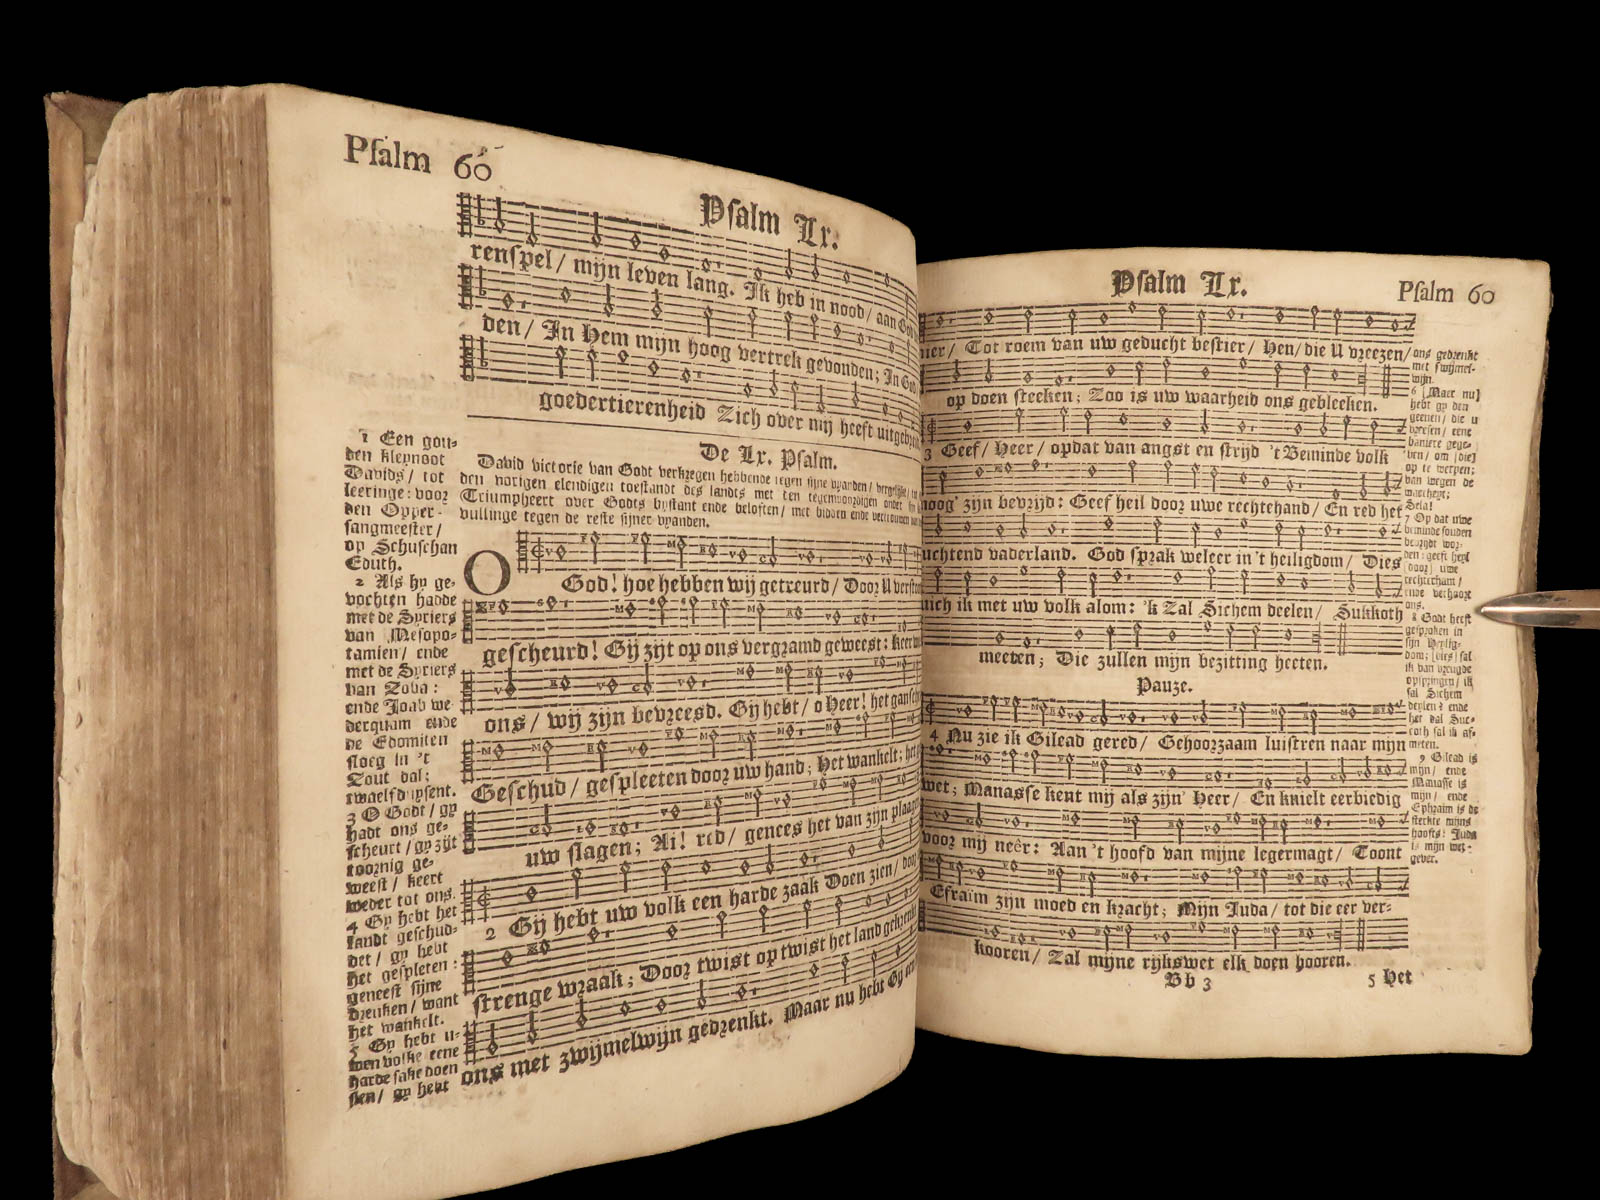 Psalm 60
Psalm Lx.
renspel/ mijn leven lang. Ik heb in nood/ aan God
den/ In Hem mijn hoog vertrek gevonden; In God
goedertierenheid Zich over mij heeft uitgebreid
De Lx. Psalm.
David victorie van Godt verkregen hebbende tegen sijne vyanden/
den vorigen elendigen toestandt des landts met ten tegenwoordigen onder
Triumpheert over Godts bystant ende beloften/ met bidden ende
vullinge tegen de reste sijner vyanden.
O God! hoe hebben wij getreurd/ Door U
gescheurd! Gij zijt op ons vergramd geweest: keer
ons/ wij zijn bevreesd. Gij hebt/ o Heer! het
Geschud/ gespleeten door uw hand; Het wankelt;
uw slagen; Ai! red/ genees het van zijn
2 Gij hebt uw volk een harde zaak Doen zien/
strenge wraak; Door twist op twist het land
ons met zwijmelwijn gedrenkt. Maar nu hebt Gij
1 Een gou-
den kleynoot
Davids/ tot
leeringe: voor
den Opper-
sangmeester/
op Schuschan
Eduth.
2 Als hy ge-
vochten hadde
met de Syriers
van Mesopo-
tamien/ ende
met de Syriers
van Zoba:
ende Joab we-
derquam ende
de Edomiten
sloeg in 't
Zout dal;
twaelf duysent.
3 O Godt/ gy
hadt ons ge-
scheurt/ gy zijt
toornig ge-
weest/ keert
weder tot ons.
4 Gy hebt het
landt geschud-
det/ gy hebt
het gespleten:
geneest sijne
breuken/ want
het wankelt.
5 Gy hebt u-
wen volke eene
harde sake doen
sien/ gy hebt
Psalm Lx.
Psalm 60
Tot roem van uw geducht bestier/ Hen/ die U vreezen/
op doen steeken; Zoo is uw waarheid ons gebleeken.
3 Geef/ Heer/ opdat van angst en strijd 't Beminde volk
moog' zijn bevrijd: Geef heil door uwe rechtehand/ En red het
vaderland. God sprak weleer in 't heiligdom/ Dies
ik met uw volk alom: 'k Zal Sichem deelen/ Sukkoth
meeten; Die zullen mijn bezitting heeten.
Pauze.
4 Nu zie ik Gilead gered/ Gehoorzaam luistren naar mijn
wet; Manasse kent mij als zijn' Heer/ En knielt eerbiedig
voor mij neêr: Aan 't hoofd van mijne legermagt/ Toont
Efraïm zijn moed en kracht; Mijn Juda/ tot die eer ver-
kooren/ Zal mijne rijkswet elk doen hooren.
Bb 3
5 Het
ons gedrenkt
met swijmel-
wijn.
6 [Maer nu]
hebt gy den
geenen/ die u
vreesen/ eene
baniere gege-
ven/ om [die]
op te werpen;
van wegen de
waerheyt;
Sela!
7 Op dat uwe
beminde souden
bevrydt wor-
den: geeft heyl
[door] uwe
rechterham/
ende verhoort
ons.
8 Godt heeft
gesproken in
sijn Heylig-
dom; [dies] sal
ik van vreugde
opspringen/ ik
sal Sichem
deylen: ende
het dal Suc-
coth sal ik af-
meten.
9 Gilead is
mijn/ ende
Manasse is
mijn/ ende
Ephraim is de
sterkte mijns
hoofts: Juda
is mijn wet-
gever.